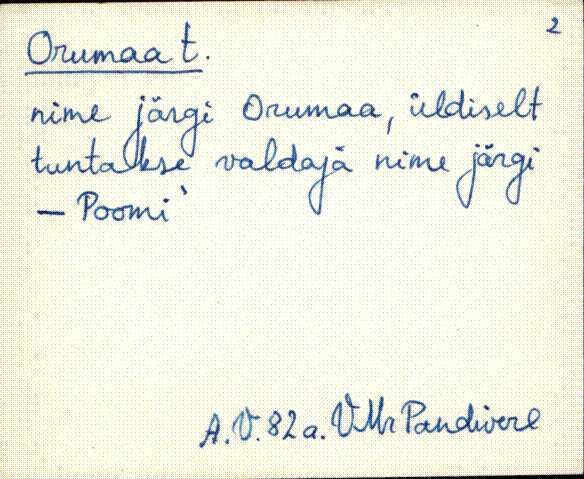 2
Orumaa t.
nime järgi Orumaa, üldiselt
tuntakse valdaja nime järgi
– Poomi`
A.V. 82a. VMr Pandivere